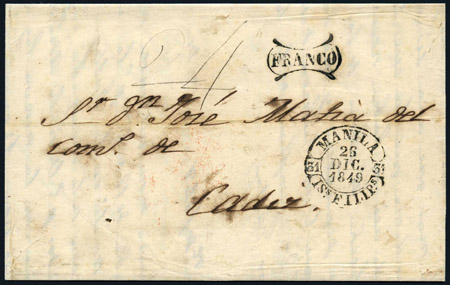 24
FRANCO
Sr Dn José Matia del
comº. de
Cadiz.
MANILA
26
DIC.
1849
31 31
ISS FILIPS